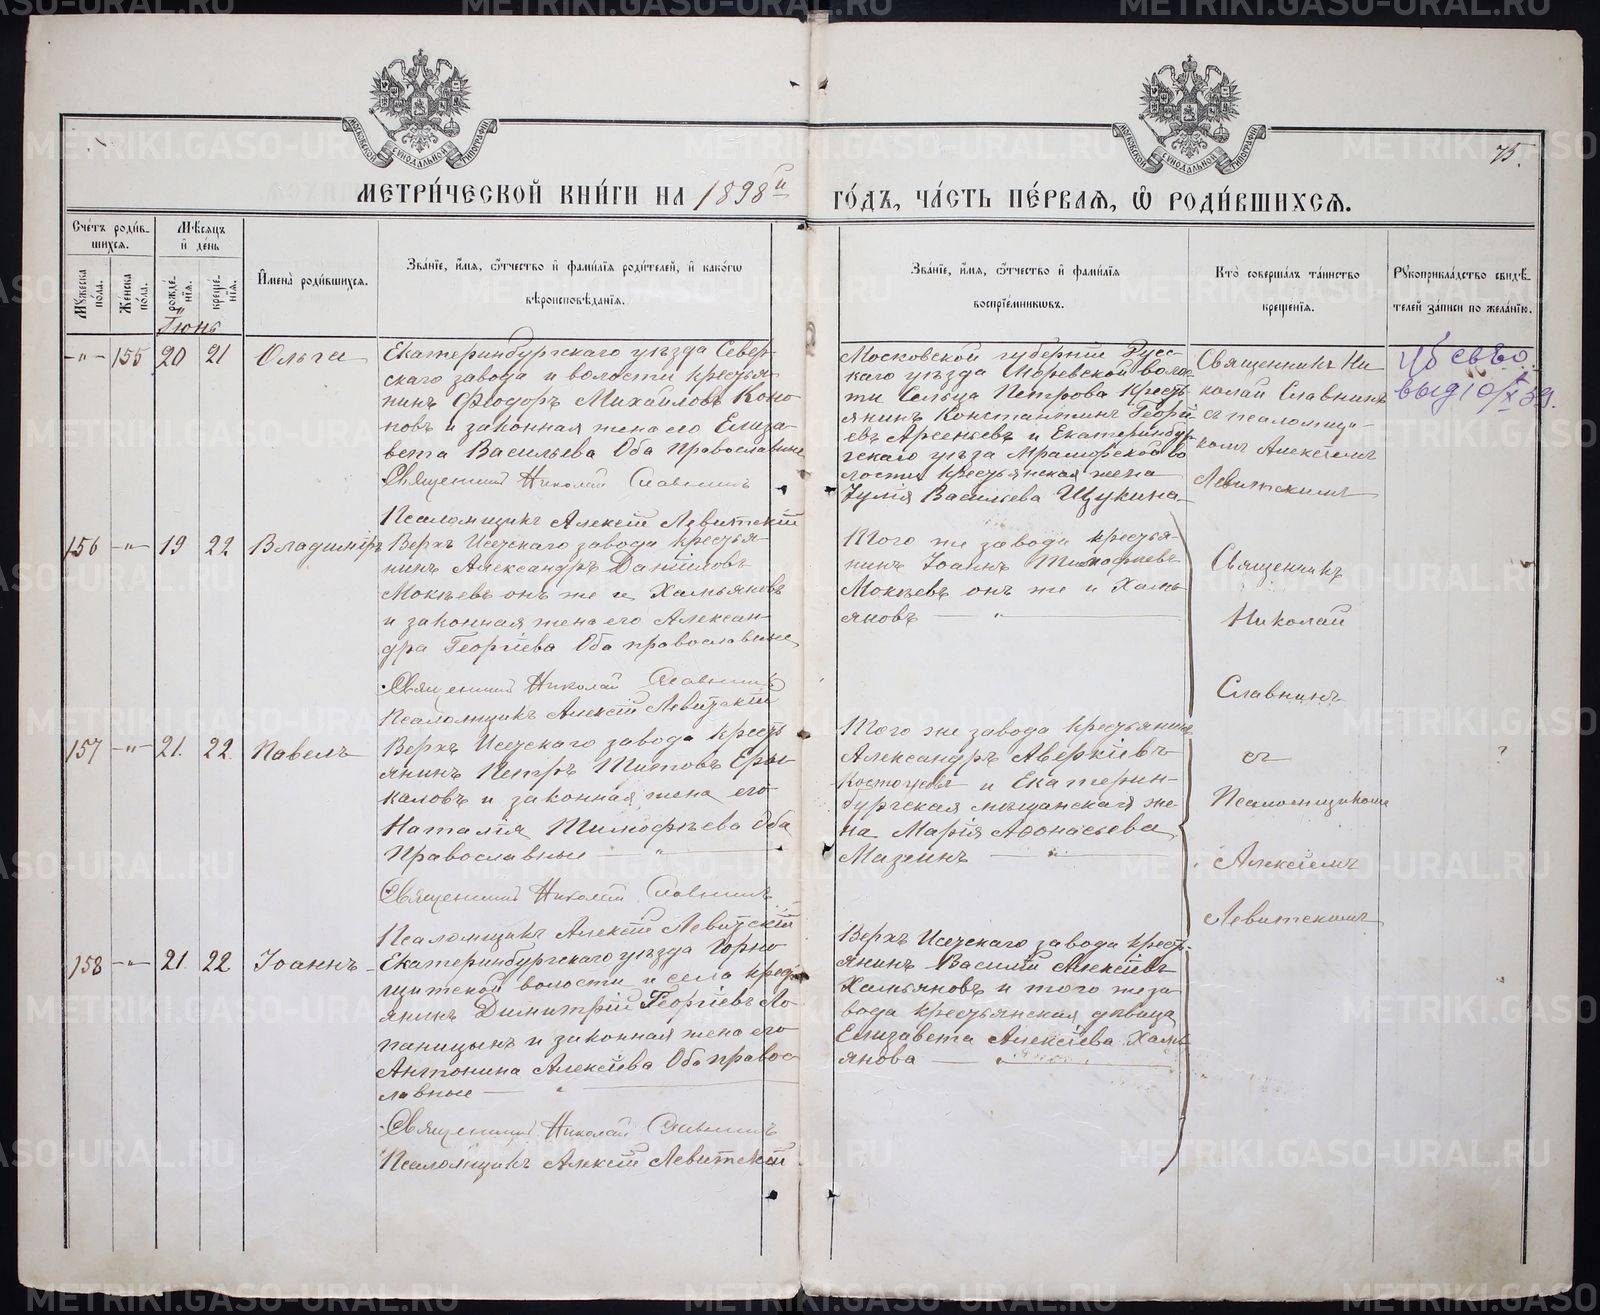 МОСКОВСКОЙ СУНОДАЛЬНОЙ ТИПОГРАФІИ
МОСКОВСКОЙ СУНОДАЛЬНОЙ ТИПОГРАФІИ
75.
МЕТРИ́ЧЕСКОЙ КНИ́ГИ НА 1898й ГО́ДЪ, ЧА́СТЬ ПЕ́РВАѦ, Ѡ҆ РОДИ́ВШИХСѦ.
Сче́тъ роди́в-
шихсѧ.
Мꙋ́жеска по́ла.
Же́нска по́ла.
Мѣ́сѧцъ
и҆ де́нь
рожде́-
нїѧ.
креще́-
нїѧ.
И҆мена̀ роди́вшихсѧ.
Зва́нїе, и҆́мѧ, ѻ҆́тчество и҆ фами́лїѧ роди́телей, и҆ како́гѡ
вѣроисповѣ́данїѧ.
Зва́нїе, и҆́мѧ, ѻ҆́тчество и҆ фами́лїѧ
воспрїе́мникѡвъ.
Кто̀ соверша́лъ та́инство
креще́нїѧ.
Рꙋкоприкла́дство свидѣ́-
телей за́писи по жела́нїю.
Іюнь
-"- 155 20 21 Ольга
Екатеринбургскаго уѣзда Север-
скаго завода и волости кресть-
янинъ Ѳеодоръ Михаиловъ Коно-
новъ и законная жена его Елиза-
вета Васильева Оба Православные
Священникъ Николай Славнинъ
Псаломщикъ Алексій Левитскій
Московской губерніи Рузс-
каго уѣзда
ти Сельца Петрова Кресть-
янинъ Константинъ Георгі-
евъ Арсеньевъ и Екатеринбур-
гскаго уѣзда Мраморской во-
лости крестьянская жена
Іулія Васильева Щукина
Священникъ Ни-
колай Славнинъ
съ псаломщи-
комъ Алексіемъ
Левитскимъ
свъо
выд 10/X 39.
156 -"- 19 22 Владиміръ
Верхъ Исетскаго завода крестья-
нинъ Александръ Даниловъ
Мокѣевъ онъ же и Хамьяновъ
и законная жена его Алексан-
дра Георгіева Оба православные
Священникъ Николай Славнинъ
Псаломщикъ Алексій Левитскій
Того же завода крестья-
нинъ Іоаннъ Тимофеевъ
Мокѣевъ онъ же и Хамь-
яновъ — " —
Священникъ
Николай
Славнинъ
съ
Псаломщикомъ
Алексіемъ
Левитскимъ
157 -"- 21. 22. Павелъ
Верхъ Исетскаго завода кресть-
янинъ Петръ Титовъ Еры-
каловъ и законная жена его
Наталія Тимофѣева Оба
Православные — " —
Священникъ Николай Славнинъ
Псаломщикъ Алексій Левитскій
Того же завода крестьянинъ
Александръ Аверкіевъ
Костоусовъ и Екатерин-
бургская мѣщанская же-
на Марія Аѳонасьева
Мазеинъ — " —
?
158 -"- 21. 22 Іоаннъ
Екатеринбургскаго уѣзда Горно-
щитской волости и села кресть-
янинъ Димитрій Георгіевъ Ло-
паницынъ и законная жена его
Антонина Алексіева Оба правос-
лавные — " —
Священникъ Николай Славнинъ
Псаломщикъ Алексій Левитскій
Верхъ Исетскаго завода кресть-
янинъ Василій Алексіевъ
Хамьяновъ и того же за-
вода крестьянская дѣвица
Елизавета Алексіева Хамь-
янова —
METRIKI.GASO-URAL.RU